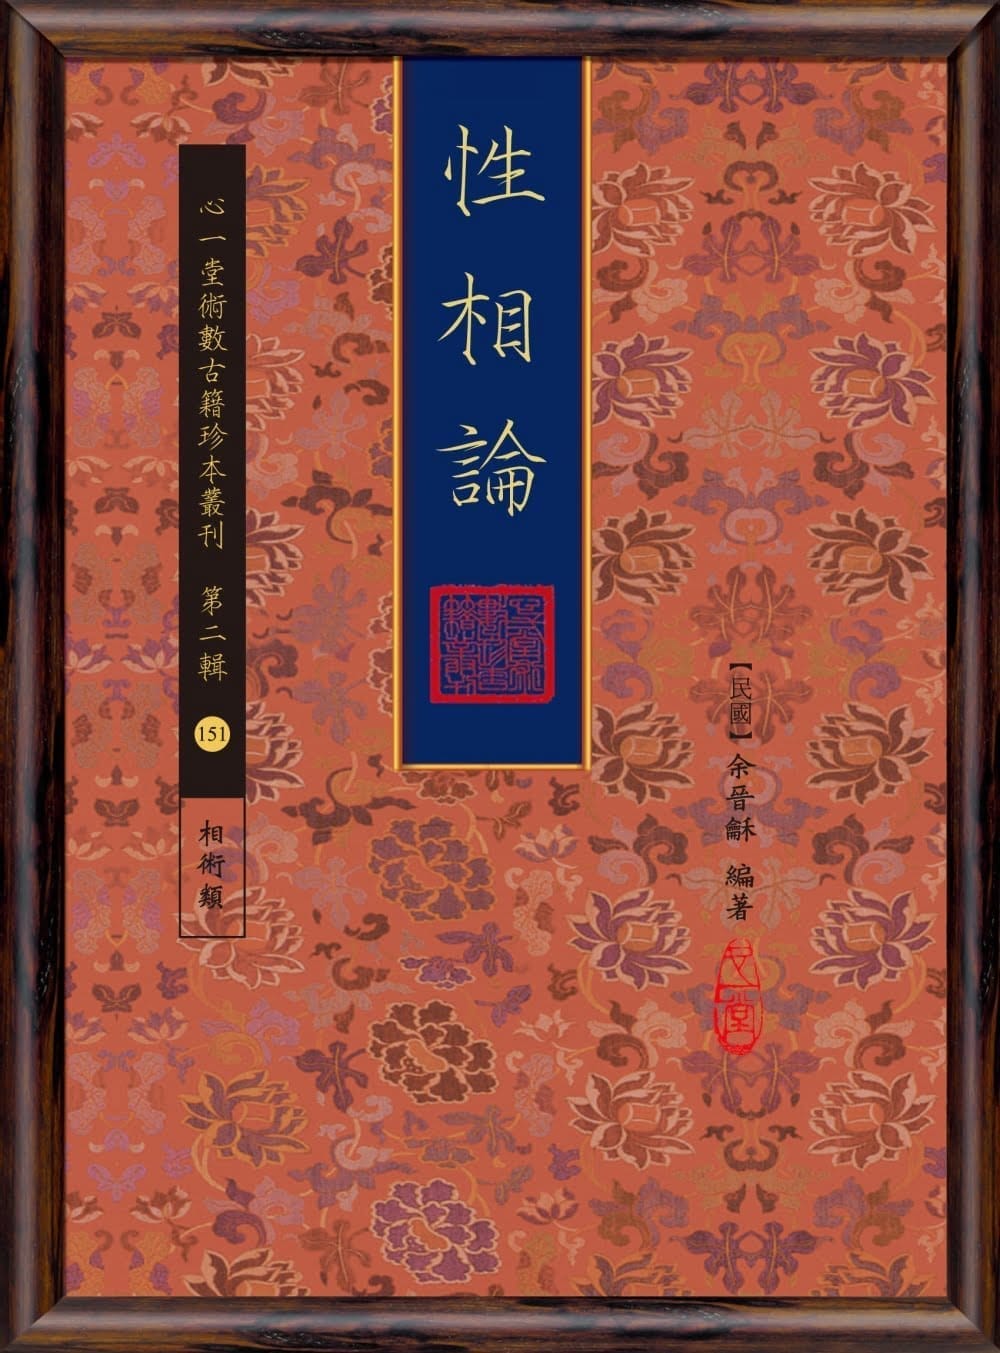 性相論
【民國】余晉龢 編著
心一堂術數古籍珍本叢刊 第二輯
151
相術類